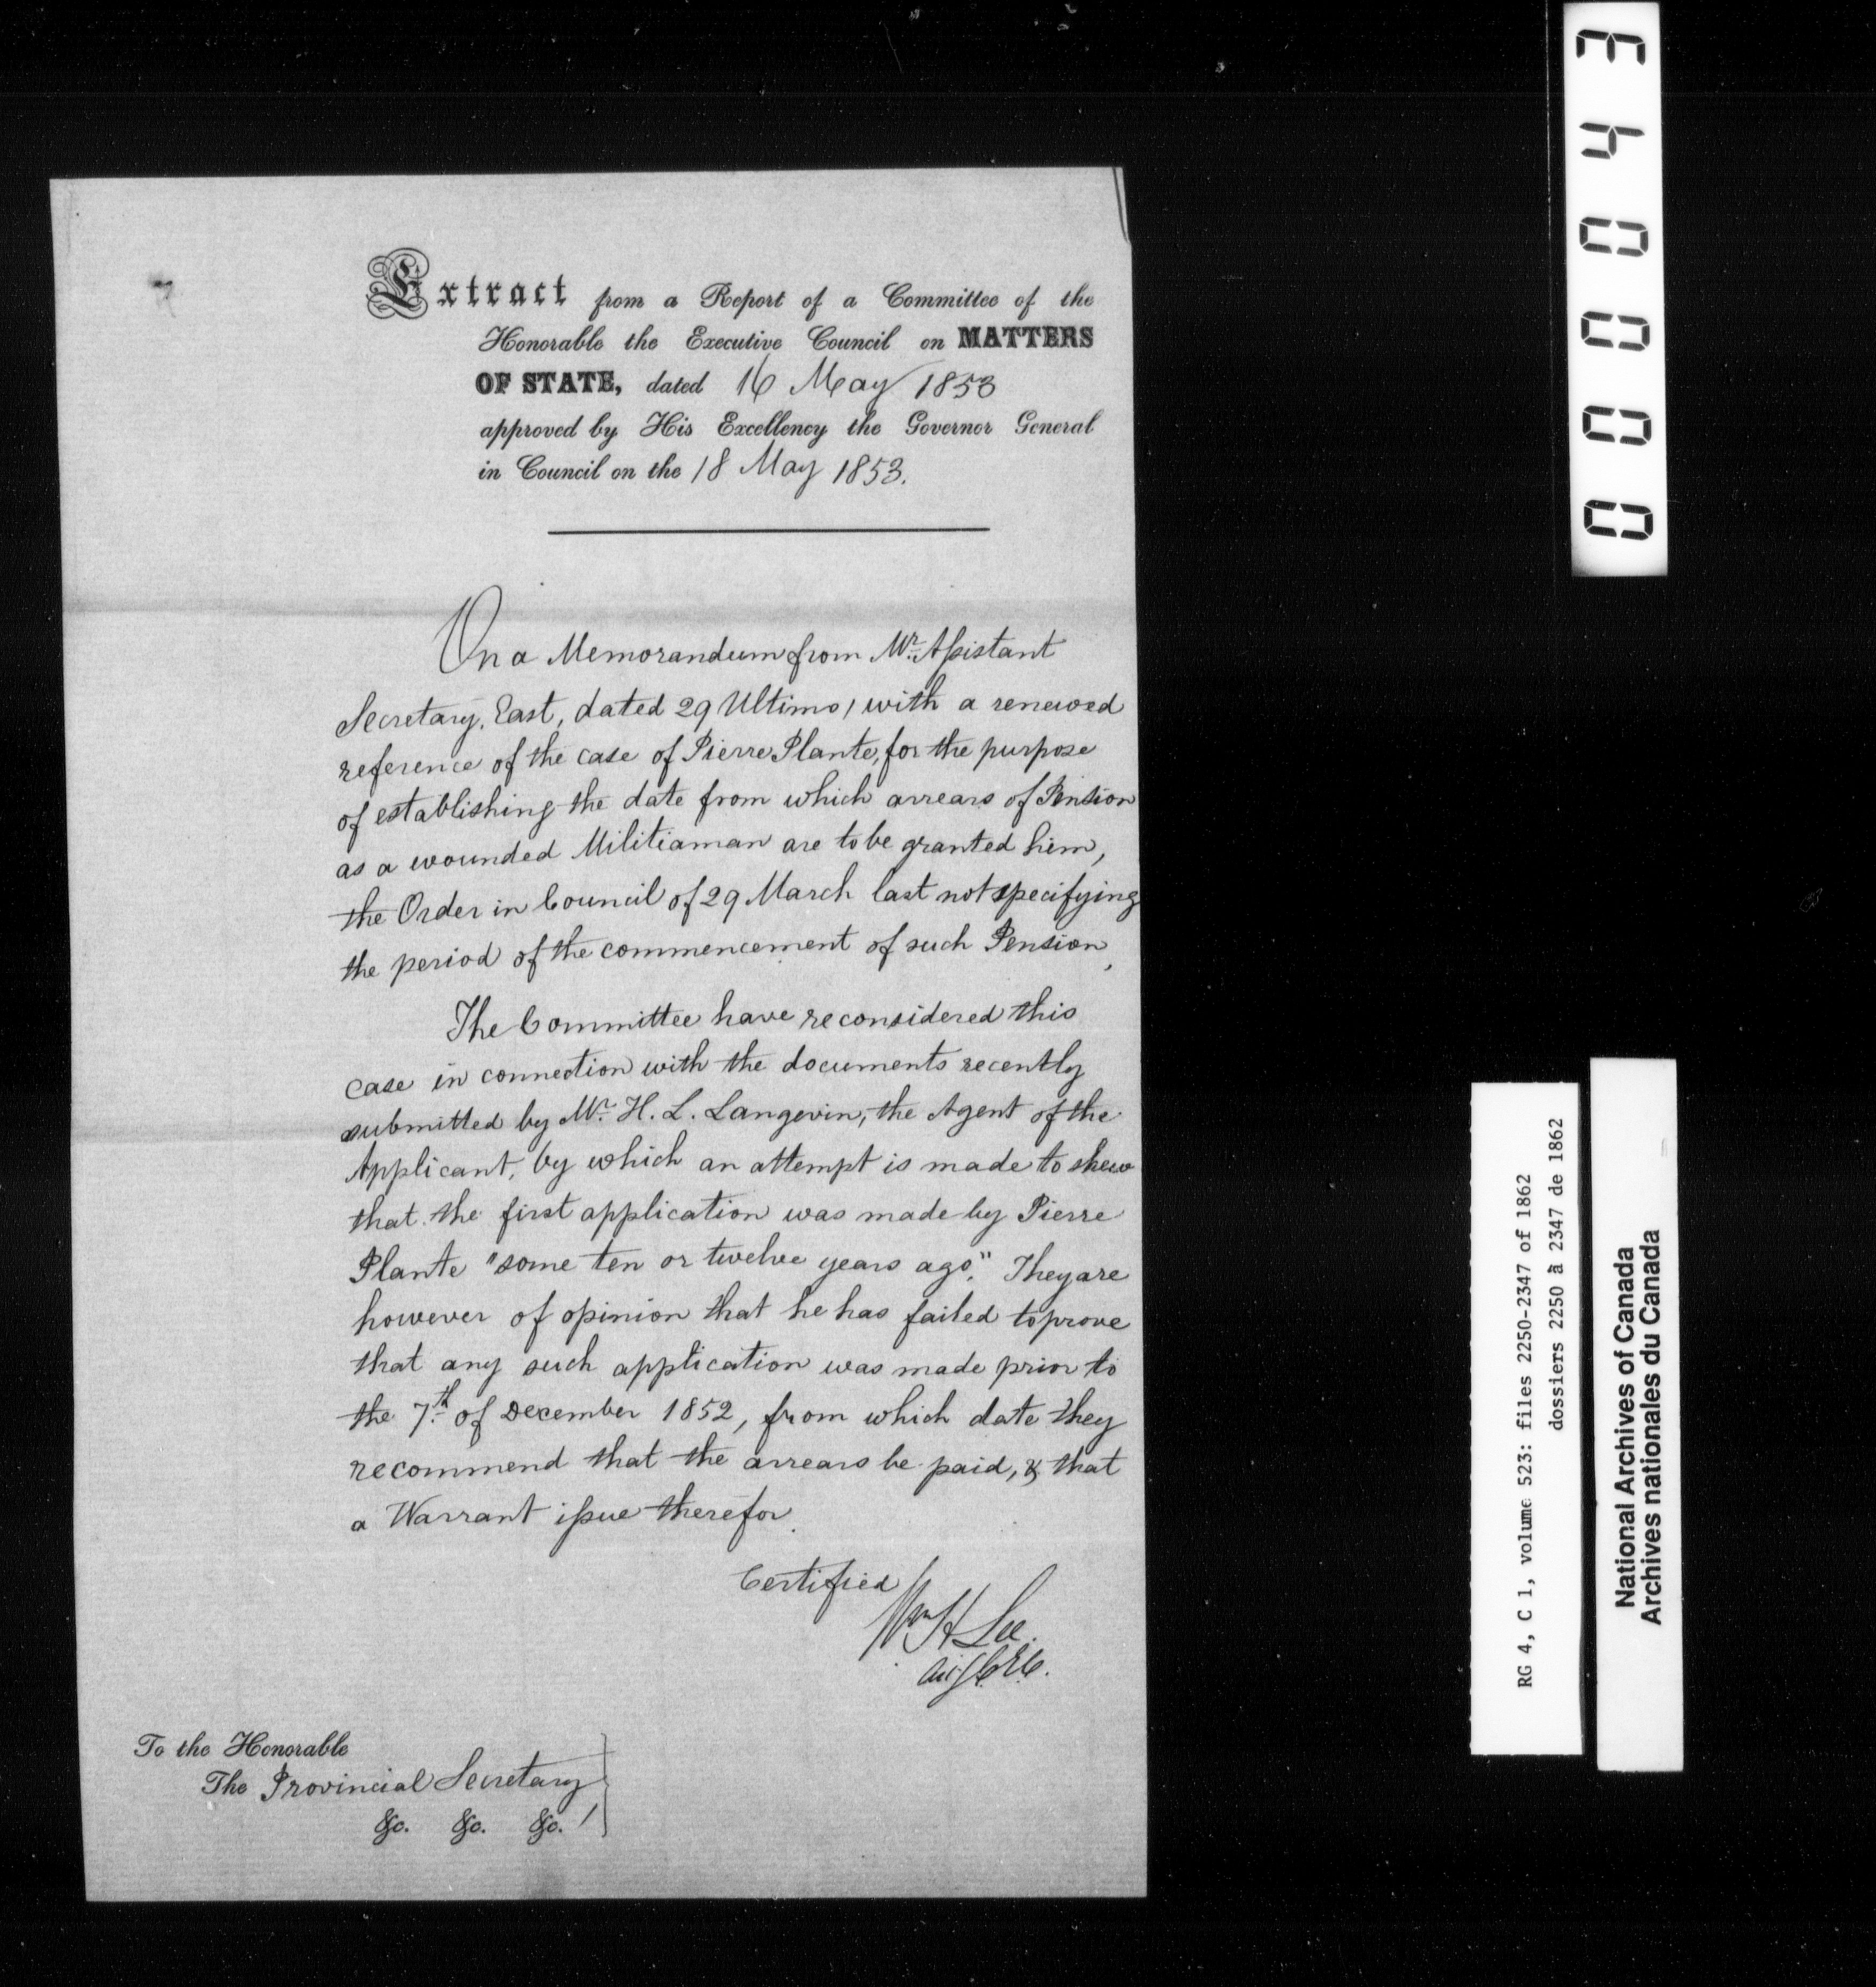 Extract from a Report of a Committee of the
Honorable the Executive Council on MATTERS
OF STATE, dated 16 May 1853
approved by His Excellency the Governor General
in Council on the 18 May 1853.
On a Memorandum from Mr. Assistant
Secretary, East, dated 29 Ultimo, with a renewed
reference of the case of Pierre Plante, for the purpose
of establishing the date from which arrears of Pension
as a wounded Militiaman are to be granted him,
the Order in Council of 29 March last not specifying
the period of the commencement of such Pension,
The Committee have reconsidered this
case in connection with the documents recently
submitted by Mr. H. L. Langevin, the Agent of the
Applicant, by which an attempt is made to shew
that the first application was made by Pierre
Plante "some ten or twelve years ago." They are
however of opinion that he has failed to prove
that any such application was made prior to
the 7th of December 1852, from which date they
recommend that the arrears be paid, & that
a Warrant issue therefor.
Certified
Wm H Lee.
C.E.C.
To the Honorable
The Provincial Secretary
&c. &c. &c.
00043
RG 4, C 1, volume 523: files 2250-2347 of 1862
dossiers 2250 à 2347 de 1862
National Archives of Canada
Archives nationales du Canada